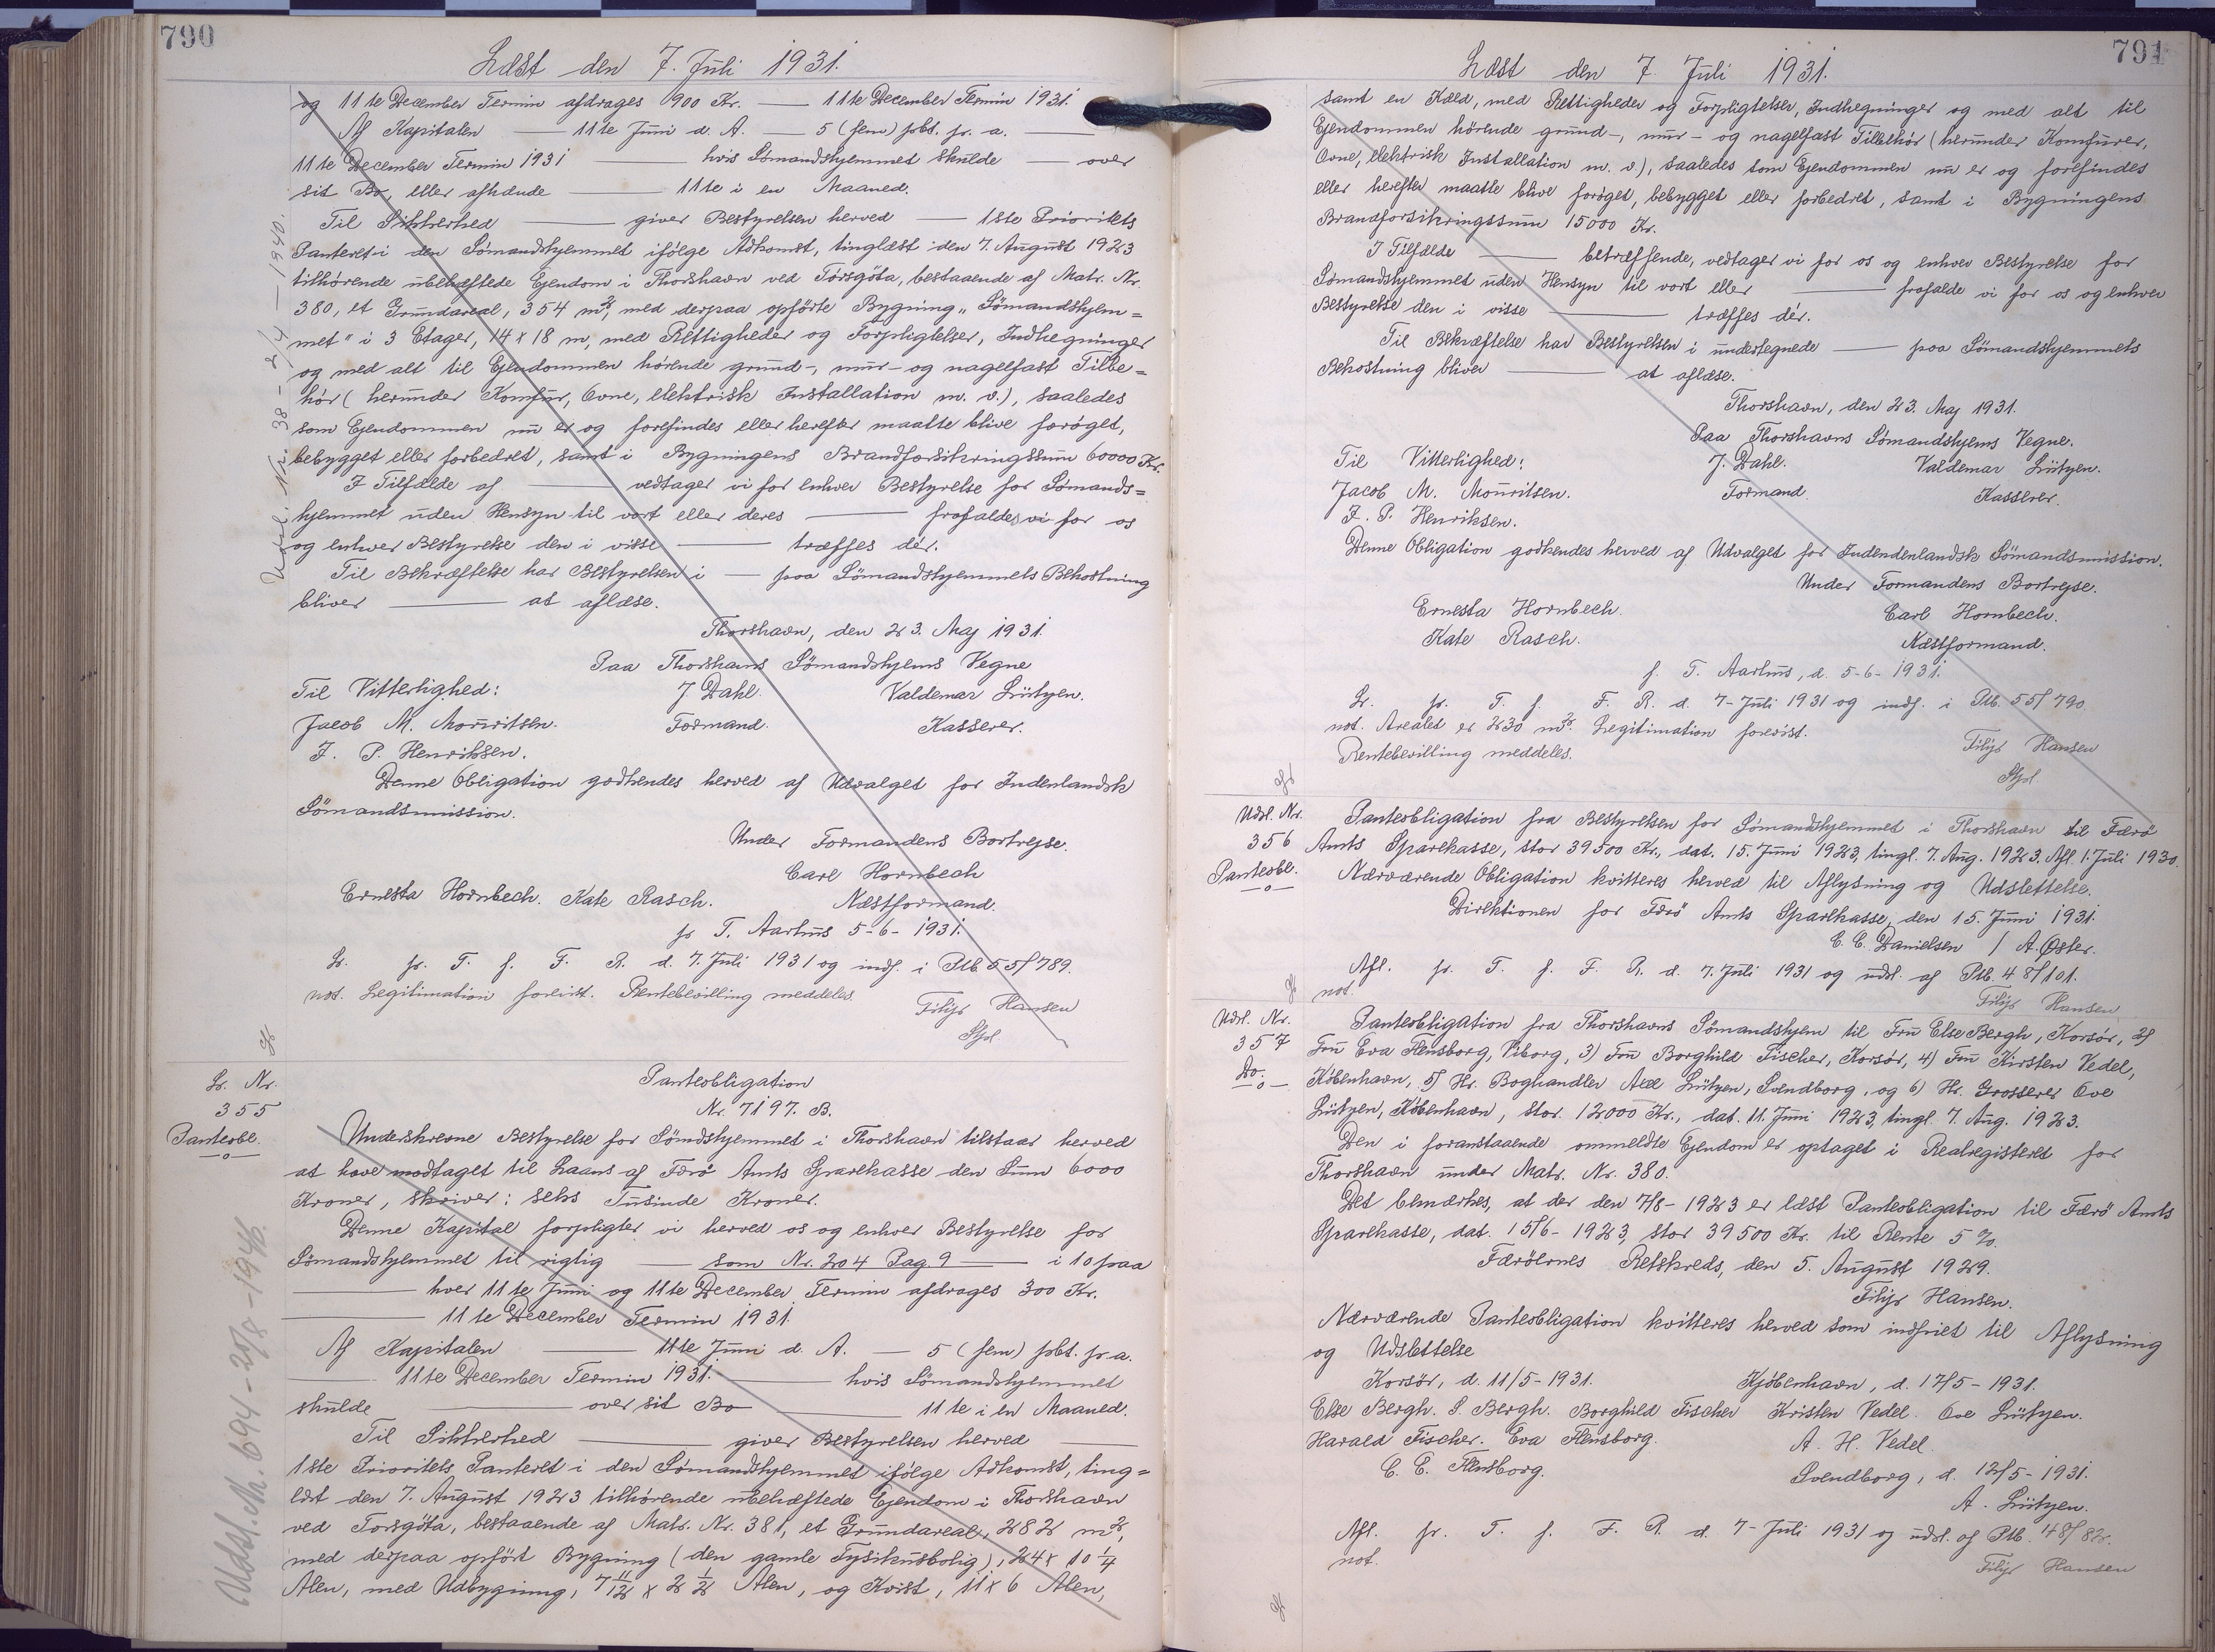 790
Læst den 7. Juli 1931.
og 11te December Termin afdrages 900 Kr. — 11te December Termin 1931.
Af Kapitalen — 11te Juni d. A. — 5 (fem) pbt. pr. a. —
11te December Termin 1931 — hvis Sömandshjemmet skulde — over
sit Bo eller afhænde — 11te i en Maaned.
Til Sikkerhed — giver Bestyrelsen herved — 1ste Prioritets
Panteret i den Sömandshjemmet ifölge Adkomst, tinglæst den 7. August 1923
tilhörende ubehæftede Ejendom i Thorshavn ved Tórsgöta, bestaaende af Matr. Nr.
380, et Grundareal, 354 m², med derpaa opförte Bygning „Sömandshjem=
met" i 3 Etager, 14 x 18 m, med Rettigheder og Forpligtelser, Indhegninger
og med alt til Ejendommen hörende grund-, mur- og nagelfast Tilbe=
hör (herunder Komfur, Ovne, elektrisk Installation m. v.), saaledes
som Ejendommen nu er og forefindes eller herefter maatte blive foröget,
bebygget eller forbedret, samt i Bygningens Brandforsikringssum 60000 Kr.
I Tilfælde af — vedtager vi for enhver Bestyrelse for Sömands=
hjemmet uden Hensyn til vort eller deres — frafalder vi for os
og enhver Bestyrelse den i visse — træffes dér.
Til Bekræftelse har Bestyrelsen i — paa Sömandshjemmets Bekostning
bliver — at aflæse.
Thorshavn, den 23. Maj 1931.
Paa Thorshavns Sömandshjems Vegne
Til Vitterlighed: J. Dahl. Valdemar Lützen.
Jacob M. Mouritsen. Formand. Kasserer.
J. P. Henriksen.
Denne Obligation godkendes herved af Udvalget for Indenlandsk
Sömandsmission.
Under Formandens Bortrejse.
Carl Hornbech
Ernesta Hornbech. Kate Rasch. Næstformand.
p. T. Aarhus 5-6-1931.
L. pr. T. f. F. R. d. 7. Juli 1931 og indf. i Ptb. 55/789.
not. Legitimation forevist. Rentebevilling meddeles.
Filip Hansen
Udsl. Nr. 38 - 2/4 - 1940.
L. Nr.
355
Panteobl.
Panteobligation
Nr. 7197. B.
Underskrevne Bestyrelse for Sömdshjemmet i Thorshavn tilstaar herved
at have modtaget til Laans af Færö Amts Sparekasse den Sum 6000
Kroner, skriver: seks Tusinde Kroner.
Denne Kapital forpligter vi herved os og enhver Bestyrelse for
Sömandshjemmet til rigtig — som Nr. 204 Pag. 9 — i 10 paa
— hver 11te Juni og 11te December Termin afdrages 300 Kr.
— 11te December Termin 1931.
Af Kapitalen — 11te Juni d. A. — 5 (fem) pbt. pr. a.
— 11te December Termin 1931. — hvis Sömandshjemmet
skulde — over sit Bo — 11te i en Maaned.
Til Sikkerhed — giver Bestyrelsen herved —
1ste Prioritets Panteret i den Sömandshjemmet ifölge Adkomst, ting=
læst den 7. August 1923 tilhörende ubehæftede Ejendom i Thorshavn
ved Torsgöta, bestaaende af Matr. Nr. 381, et Grundareal, 282 m²,
med derpaa opfört Bygning (den gamle Fysikusbolig), 24 x 10 1/4
Alen, med Udbygning, 7 11/12 x 2 1/2 Alen, og Kvist, 11 x 6 Alen,
Udsl. Nr. 694 - 20/8 - 1946.
791
Læst den 7. Juli 1931.
samt en Kæld, med Rettigheder og Forpligtelser, Indhegninger og med alt til
Ejendommen hörende grund-, mur- og nagelfast Tilbehör (herunder Komfurer,
Ovne, elektrisk Installation m. v.), saaledes som Ejendommen nu er og forefindes
eller herefter maatte blive foröget, bebygget eller forbedret, samt i Bygningens
Brandforsikringssum 15000 Kr.
I Tilfælde — betræffende, vedtager vi for os og enhver Bestyrelse for
Sömandshjemmet uden Hensyn til vort eller — frafalde vi for os og enhver
Bestyrelse den i visse — træffes dér.
Til Bekræftelse har Bestyrelsen i undertegnede — paa Sömandshjemmets
Bekostning bliver — at aflæse.
Thorshavn, den 23. Maj 1931.
Paa Thorshavns Sömandshjems Vegne.
Til Vitterlighed: J. Dahl. Valdemar Lützen.
Jacob M. Mouritsen. Formand. Kasserer.
J. P. Henriksen.
Denne Obligation godkendes herved af Udvalget for Indendenlandsk Sömandsmission.
Under Formandens Bortrejse.
Ernesta Hornbech. Carl Hornbech.
Kate Rasch. Næstformand.
p. T. Aarhus, d. 5-6-1931.
L. pr. T. f. F. R. d. 7-Juli 1931 og indf. i Ptb. 55/790.
not. Arealet er 230 m². Legitimation forevist.
Rentebevilling meddeles. Filip Hansen
Udsl. Nr.
356
Panteobl.
Panteobligation fra Bestyrelsen for Sömandshjemmet i Thorshavn til Færö
Amts Sparekasse, stor 39500 Kr., dat. 15. Juni 1923, tingl. 7. Aug. 1923. Afl. 1. Juli 1930.
Nærværende Obligation kvitteres herved til Aflysning og Udslettelse.
Direktionen for Færö Amts Sparekasse, den 15. Juni 1931.
C. C. Danielsen / A. Øster.
Afl. pr. T. f. F. R. d. 7. Juli 1931 og udsl. af Ptb. 48/101.
not. Filip Hansen
Udsl. Nr.
357
Do.
Panteobligation fra Thorshavns Sömandshjem til Fru Else Bergh, Korsör, 2)
Fru Eva Flensborg, Viborg, 3) Fru Borghild Fischer, Korsör, 4) Fru Kirsten Vedel,
København, 5) Hr. Boghandler Axel Lützen, Svendborg, og 6) Hr. Grosserer Ove
Lützen, København, stor 12000 Kr., dat. 11. Juni 1923, tingl. 7. Aug. 1923.
Den i foranstaaende ommeldte Ejendom er optaget i Realregisteret for
Thorshavn under Matr. Nr. 380.
Det bemærkes, at der den 7/8-1923 er læst Panteobligation til Færö Amts
Sparekasse, dat. 15/6-1923, stor 39500 Kr. til Rente 5 %.
Færöernes Retskreds, den 5. August 1929.
Filip Hansen.
Nærværende Panteobligation kvitteres herved som indfriet til Aflysning
og Udslettelse
Korsör, d. 11/5-1931. Kjöbenhavn, d. 17/5-1931.
Else Bergh. S. Bergh. Borghild Fischer Kristen Vedel. Ove Lützen.
Harald Fischer. Eva Flensborg. A. H. Vedel.
C. E. Flensborg. Svendborg, d. 12/5-1931.
A. Lützen.
Afl. pr. T. f. F. R. d. 7-Juli 1931 og udsl. af Ptb. 48/82.
not. Filip Hansen